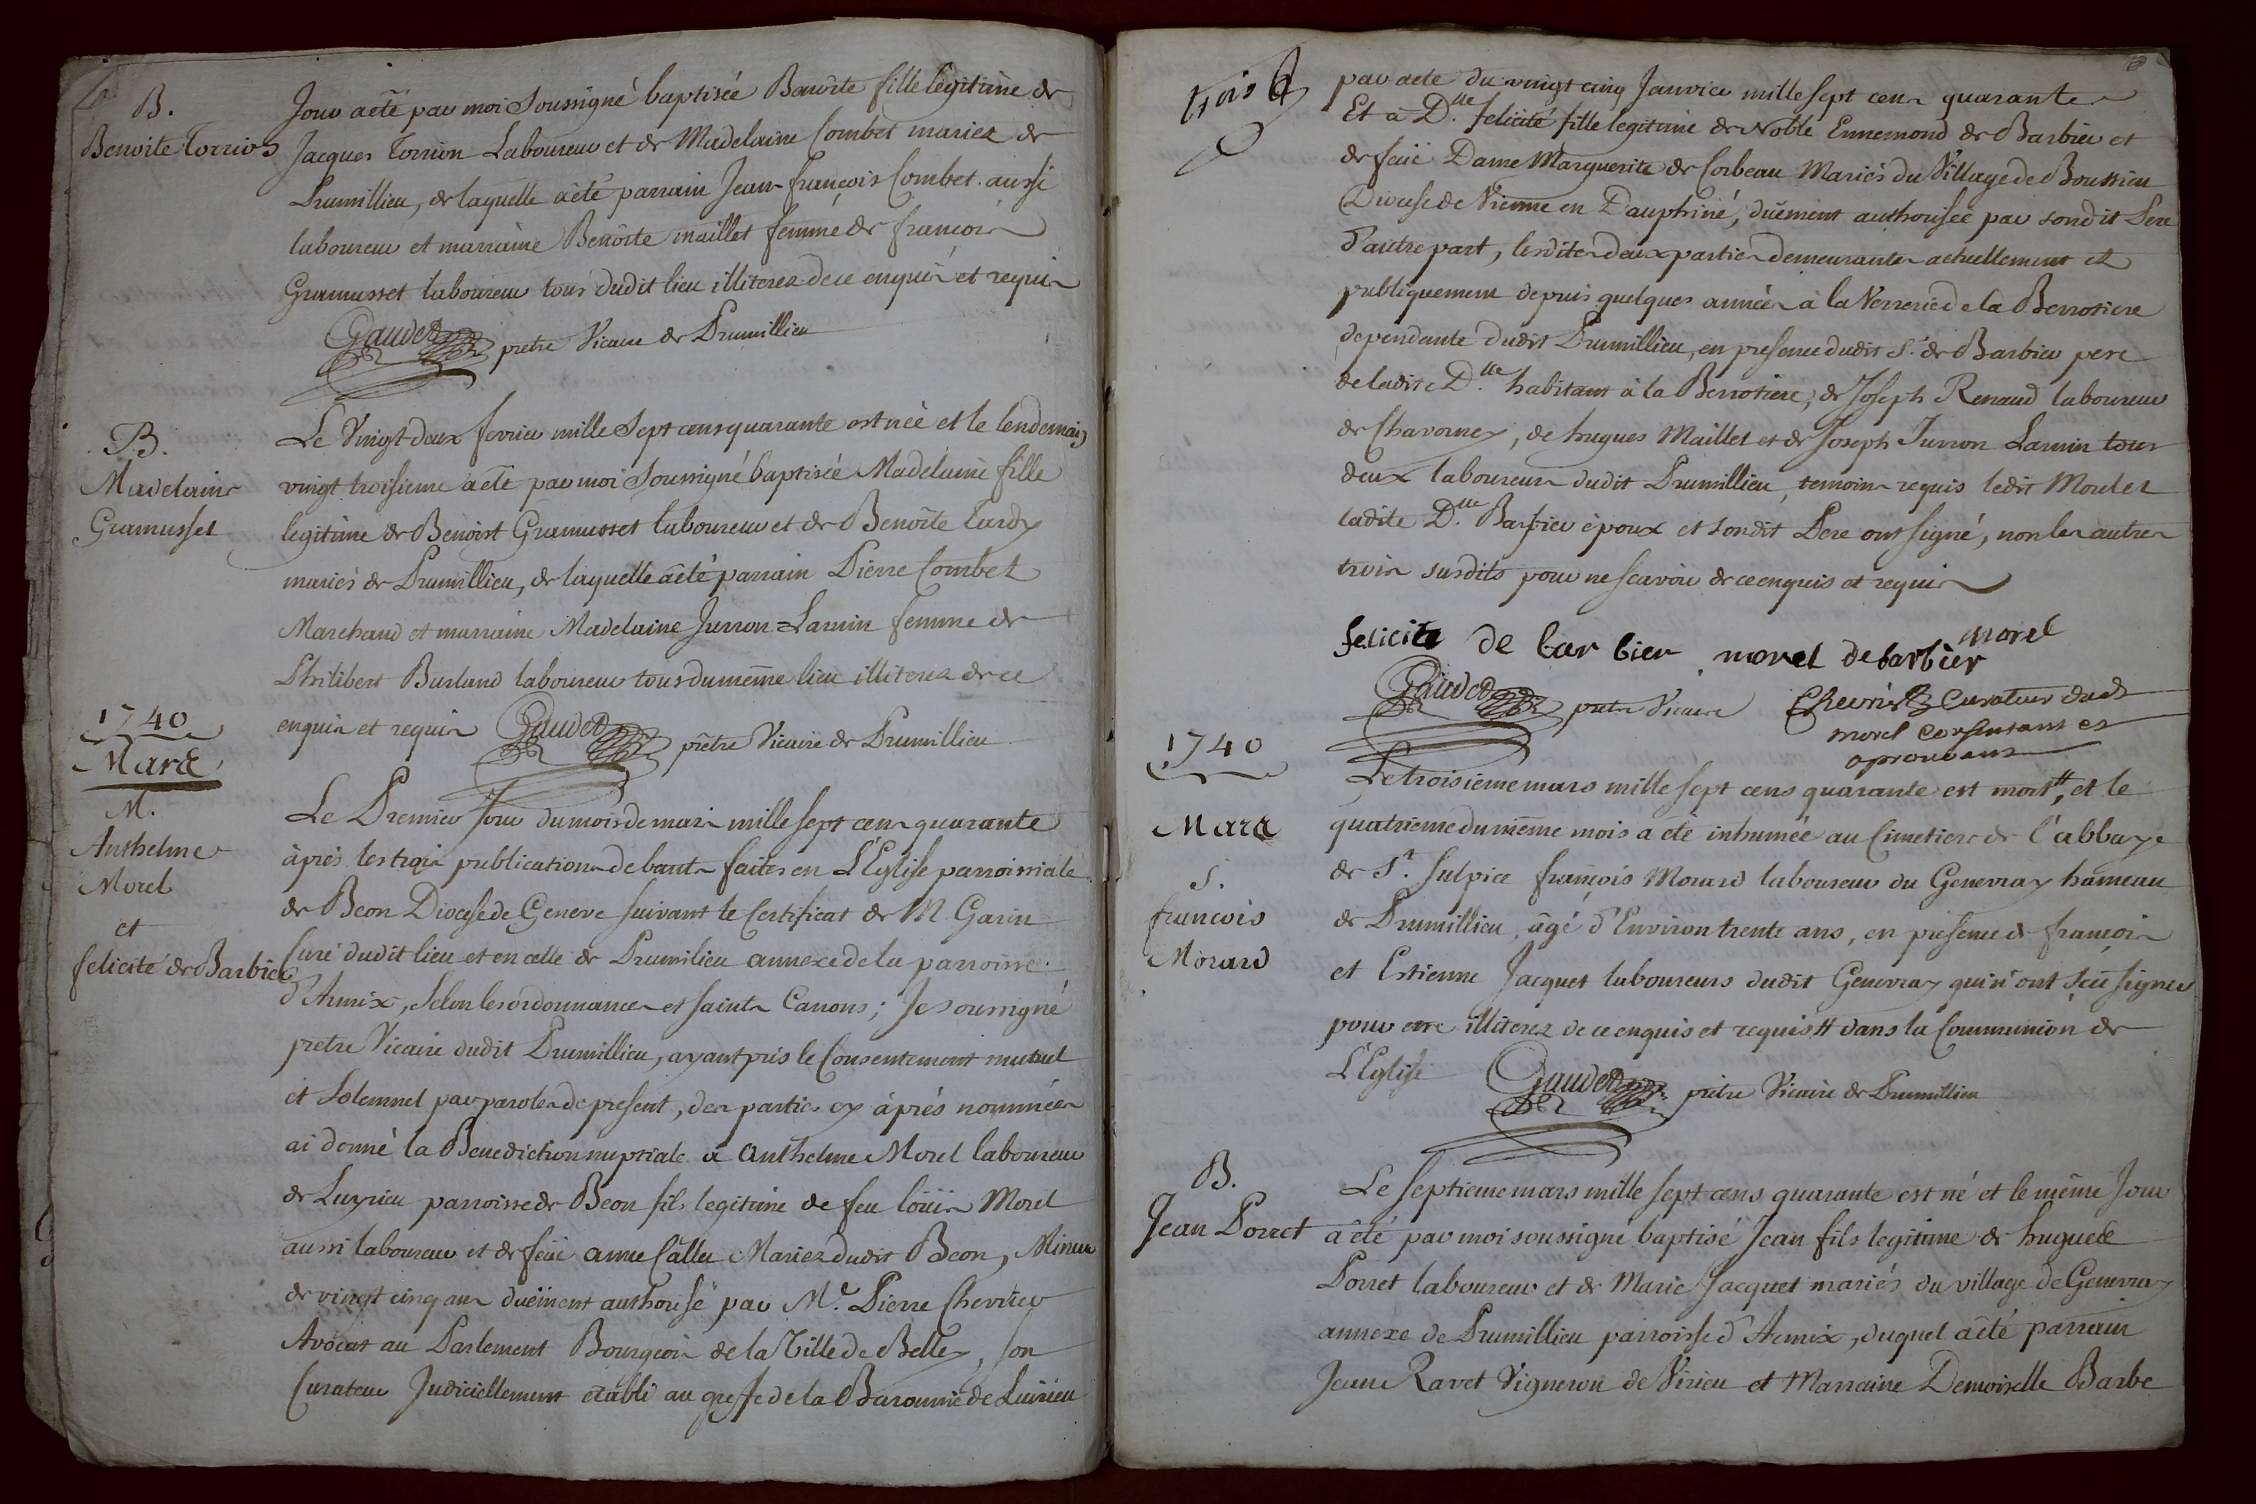 B.
Benoite Torrion
Jour a eté par moi Soussigné baptisée Benoite fille legitime de
Jacques Torrion Laboureur et de Madelaine Combet mariez de
Prumillieu, de laquelle a eté parrain Jean-françois Combet aussi
laboureur et marraine Benoite maillet femme de françois
Gramusset laboureur tous dudit lieu illiterez de ce enquis et requis
Gaudet pretre Vicaire de Prumillieu
B.
Madelaine
Gramusset
Le Vingt-deux fevrier mille Sept cens quarante est née et le lendemain
vingt troisieme a eté par moi Soussigné baptisée Madelaine fille
legitime de Benoist Gramusset laboureur et de Benoite tardy
mariés de Prumillieu, de laquelle a eté parrain Pierre Combet
Marchand et marraine Madelaine Jurron=Lamin femme de
Philibert Burland laboureur tous du même lieu illiterez de ce
enquis et requis Gaudet prêtre Vicaire de Prumillieu
1740
Mars
M.
Anthelme
Morel
et
felicité de Barbier
Le Premier Jour du mois de mars mille sept cens quarante
àprés les trois publications de bants faites en L'Eglise parroissiale
de Beon Diocese de Geneve suivant le Certificat de M. Garin
Curé dudit lieu et en celle de Prumilieu annexe de la parroisse
d'Armix, Selon les ordonnances et saints Canons; Je soussigné
pretre Vicaire dudit Prumillieu, ayant pris le Consentement mutuel
et Solemnel par paroles de present, des parties cy àprés nommées
ai donné la Benediction nuptiale a Anthelme Morel laboureur
de Luyrieu parroisse de Beon fils legitime de feu loüis Morel
aussi laboureur et de feüe anne Callu Mariez dudit Beon, Mineur
de vingt cinq ans duëment authorisé par Me. Pierre Chevrier
Avocat au Parlement Bourgeois de la Ville de Belley, son
Curateur Judiciellement établi au greffe de la Baronnie de Luirieu
trois
par acte du vingt cinq Janvier mille sept cens quarante
Et à Dlle. felicité fille legitime de Noble Ennemond de Barbier et
de feüe Dame Marguerite de Corbeau Mariés du Village de Boussieu
Diocese de Vienne en Dauphiné, duëment authorisée par sondit Pere
d'autre part, lesdites deux parties demeurantes actuellement et
publiquement depuis quelques années à la Verrerie de la Berrotiere
dependante dudit Prumillieu, en presence dudit Sr. de Barbier pere
de ladite Dlle. habitant à la Berrotiere, de Joseph Renaud laboureur
de Chavorney, de hugues Maillet et de Joseph Jurron Lamin tous
deux laboureurs dudit Prumillieu, temoins requis ledit Morel et
ladite Dlle. Barbier époux et sondit Pere ont signé, non les autres
trois susdits pour ne scavoir de ce enquis et requis
felicite de bar bier morel debarbier morel
Gaudet pretre Vicaire Chevrier Curateur dudt
morel Consentant et
aprouvant
1740
Mars
S.
françois
Morard
Le troisieme mars mille sept cens quarante est mort #, et le
quatrieme du même mois a eté inhumée au Cimetiere de l'abbaye
de St. Sulpice françois Morard laboureur du Genevray hameau
de Prumillieu, âgé d'Environ trente ans, en presence de françois
et Estienne Jacquet laboureurs dudit Genevray qui n'ont sçu signer
pour etre illiterez de ce enquis et requis # dans la Communion de
L'Eglise Gaudet prêtre Vicaire de Prumillieu
B.
Jean Porret
Le septieme mars mille sept cens quarante est né et le même Jour
a êté par moi soussigné baptisé Jean fils legitime de hugues
Porret laboureur et de Marie Jacquet mariés du village de Genevray
annexe de Prumillieu parroisse d'Armix, duquel a êté parrain
Jean Ravet Vigneron de Virieu et Marraine Demoiselle Barbe